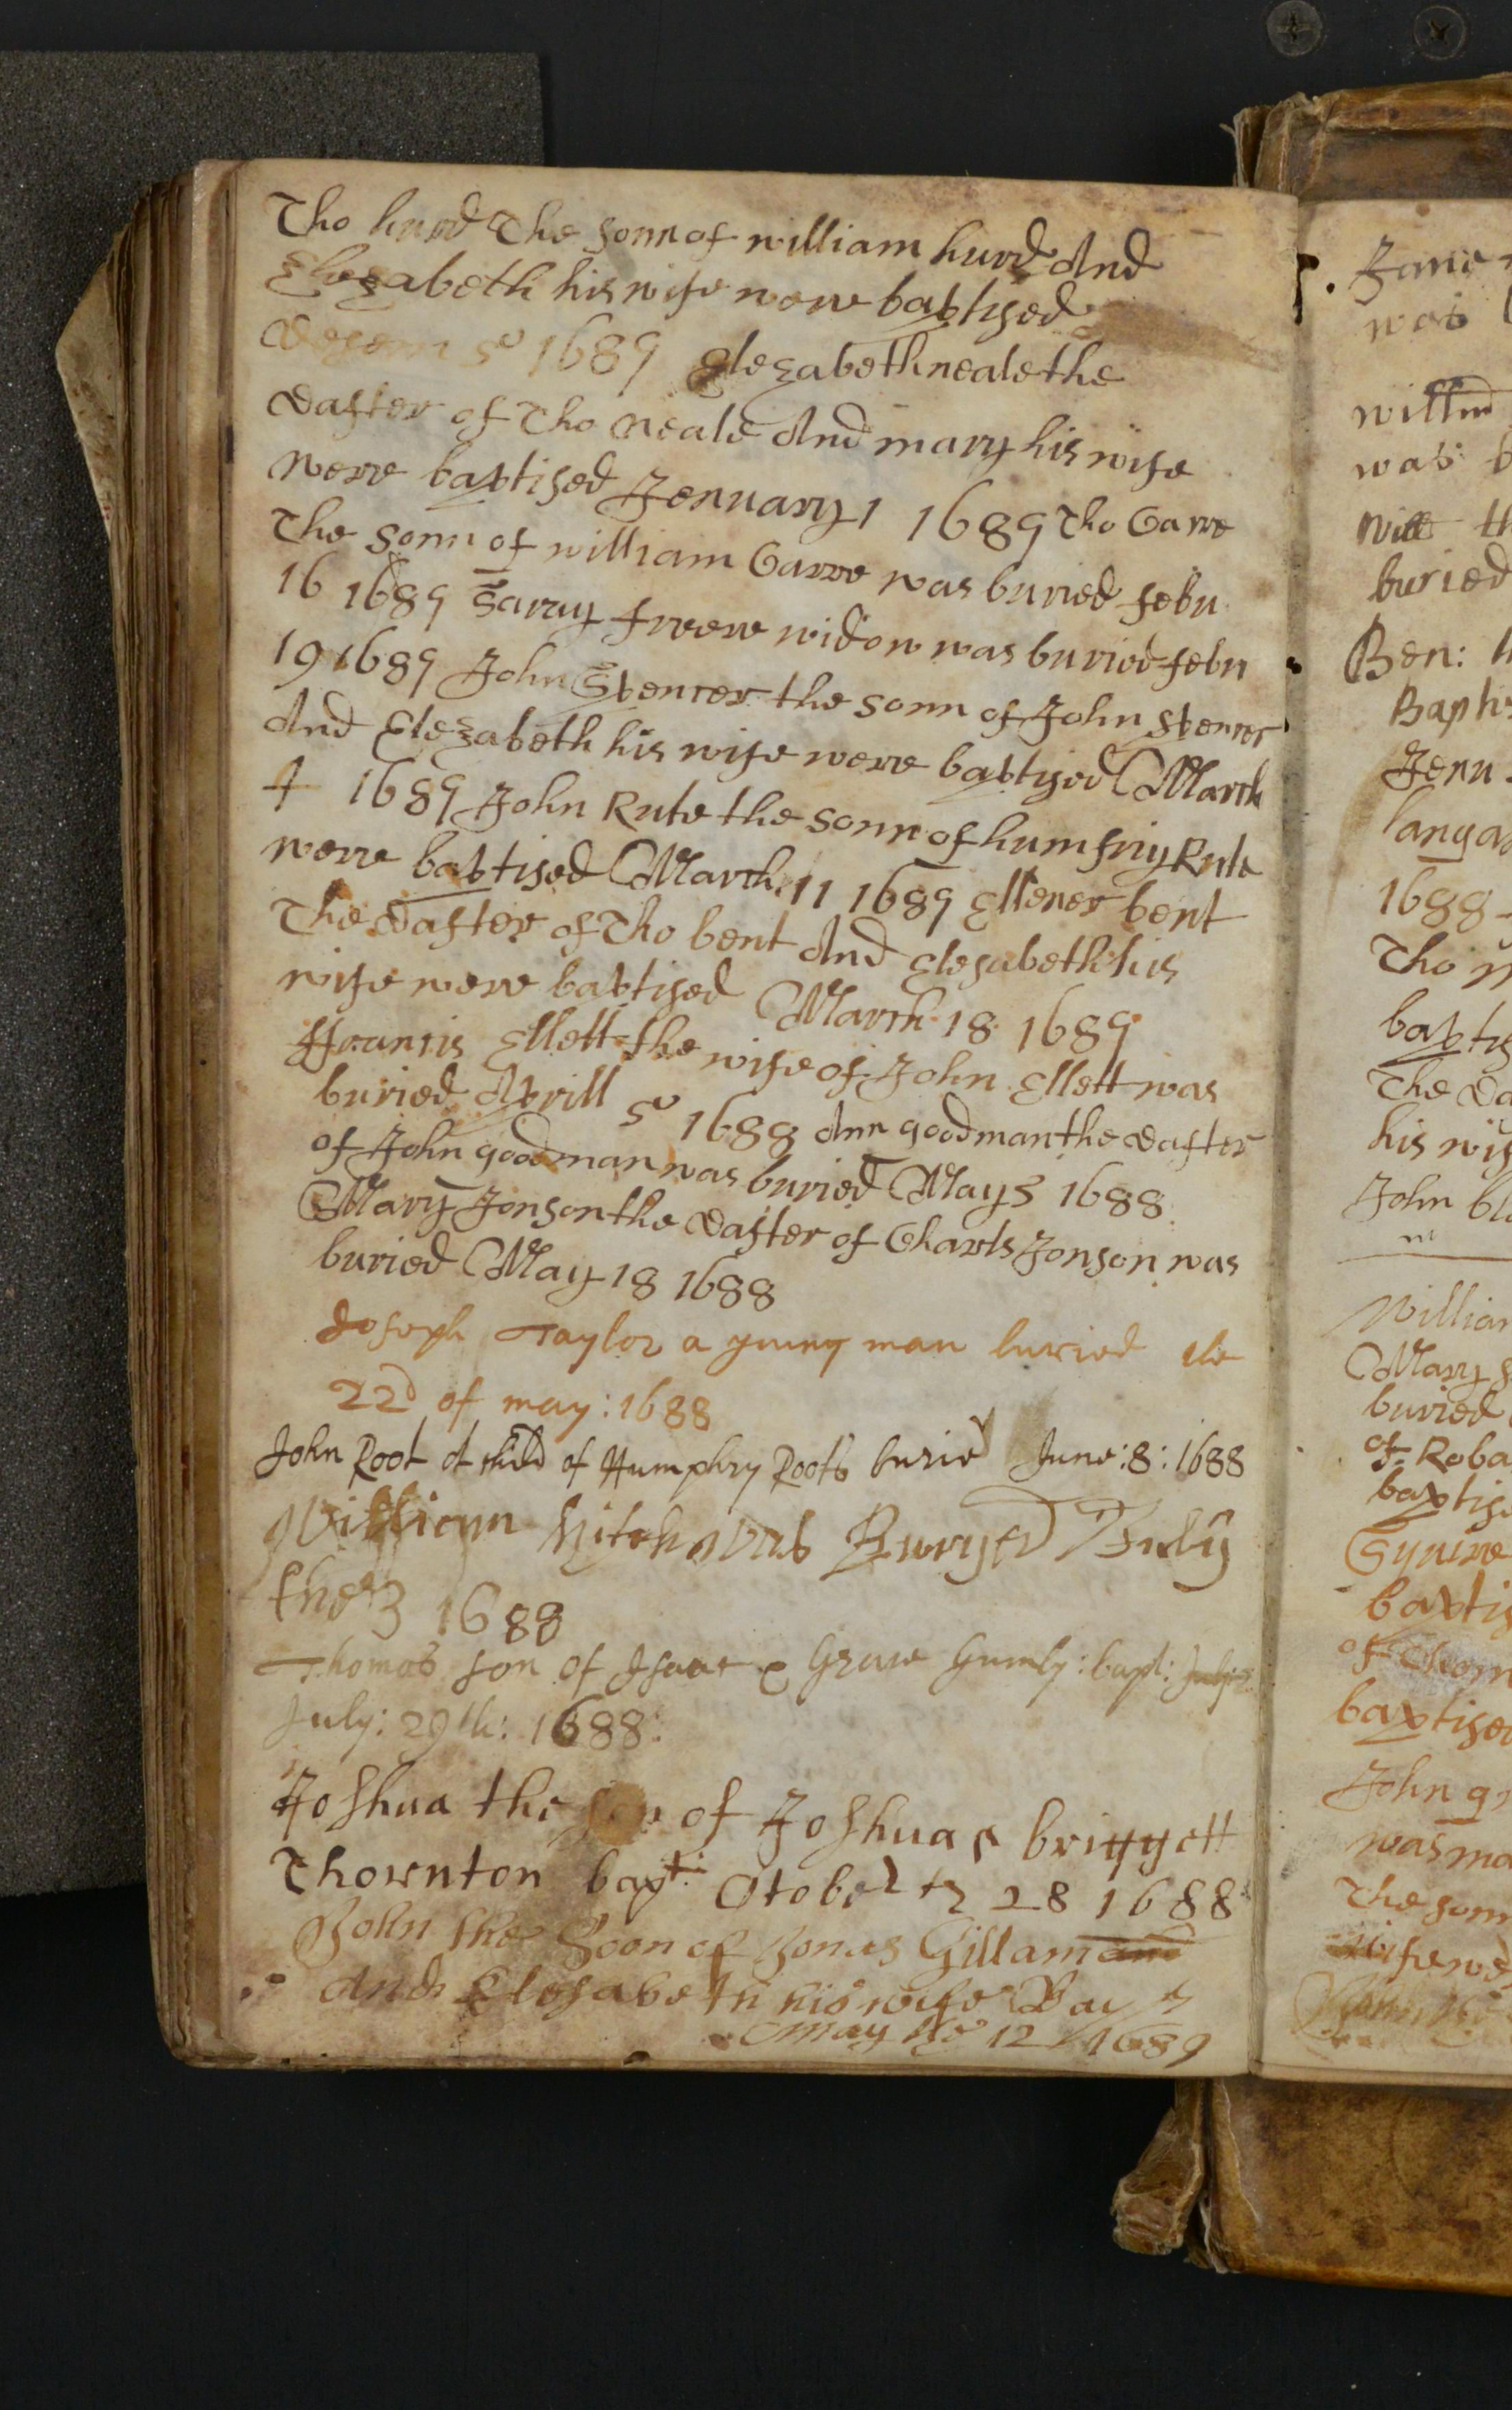 Tho hurd The sonn of william hurd And
Elezabeth his wife were baptised
Desem 5 1689 Elezabeth neale the
dafter of Tho neale And mary his wife
were baptised Jenuary 1 1689 Tho Carre
The sonn of william Carre was buried febu
16 1689 Sarry frrere widow was buried febu
19 1689 John Spencer the sonn of John Spencer
And Elezabeth his wife were baptised March
4 1689 John Rute the sonn of humfriy Rute
were baptised March 11 1689 Ellener bent
The dafter of Tho bent And Elesabeth his
wife were baptised March 18 1689
ffrancis Ellett the wife of John Ellett was
buried Aprill 5 1688 Ann goodman the dafter
of John goodman was buried May 3 1688
Mary Jonson the dafter of Charls Jonson was
buried May 18 1688
Joseph Taylor a young man buried the
22d of may: 1688
John Root A child of Humphry Roots buried June: 8: 1688
William hitch was Buryed July
the 3 1688
Thomas son of Isaac & Grace Gumly: bapt:
July: 29th: 1688:
Joshua the son of Joshua & briggett
Thornton bapt: Otober 28 1688
John the Soon of Jonas Gillam and
And Elesabeth his wife Bap
may the 12 1689
Jane
was
willm
was
will
buried
Ben:
Baptis
Jenu
1688
Tho
baptis
The da
his wif
John
m
William
Mary
buried
of Roba
baptis
baptis
of Thom
baptised
John
was ma
The sonn